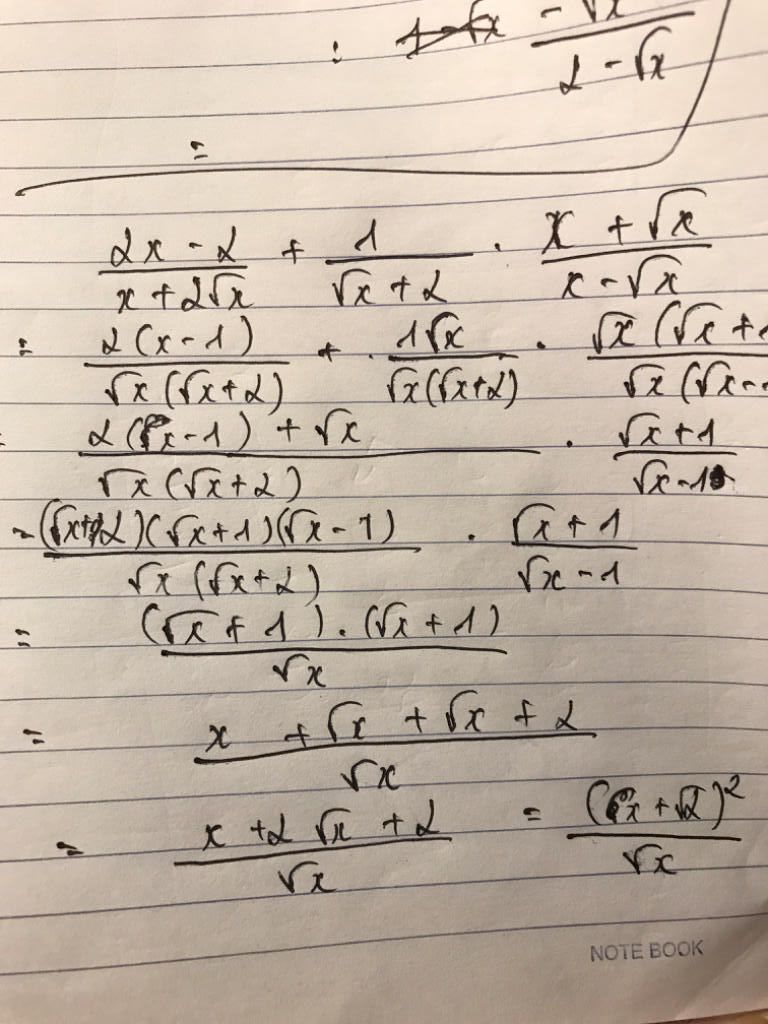 : 1-√x -√x / 2-√x
=
(2x-2)/(x+2√x) + 1/(√x+2) · (x+√x)/(x-√x)
= 2(x-1)/(√x(√x+2)) + 1√x/(√x(√x+2)) · √x(√x+1/√x(√x-
= (2(x-1)+√x)/(√x(√x+2)) · (√x+1)/(√x-1)
= (√x+2)(√x+1)(√x-1)/(√x(√x+2)) · (√x+1)/(√x-1)
= (√x+1).(√x+1)/√x
= (x+√x+√x+2)/√x
= (x+2√x+2)/√x = (x+√2)²/√x
NOTE BOOK